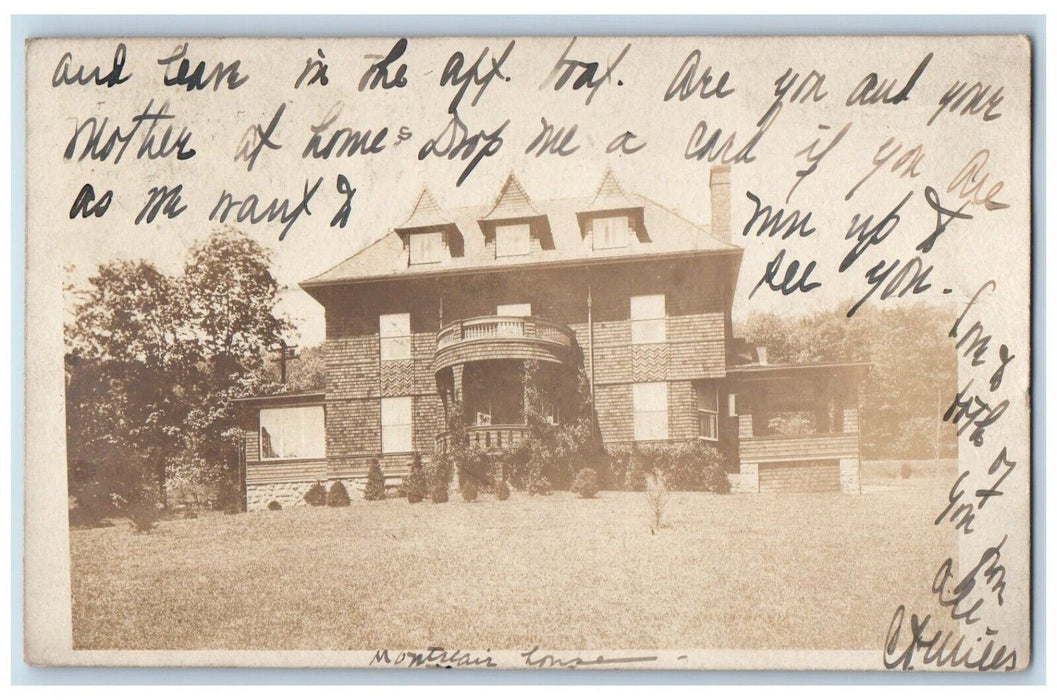 and leave in the aft. boat. Are you and your
Mother at home? Drop me a card if you are
as we want to run up &
see you.
Love to
both of
you from
all.
C.H. Miles
Montclair house